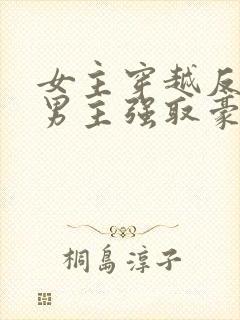 女主穿越反
男主强取豪
桐島淳子